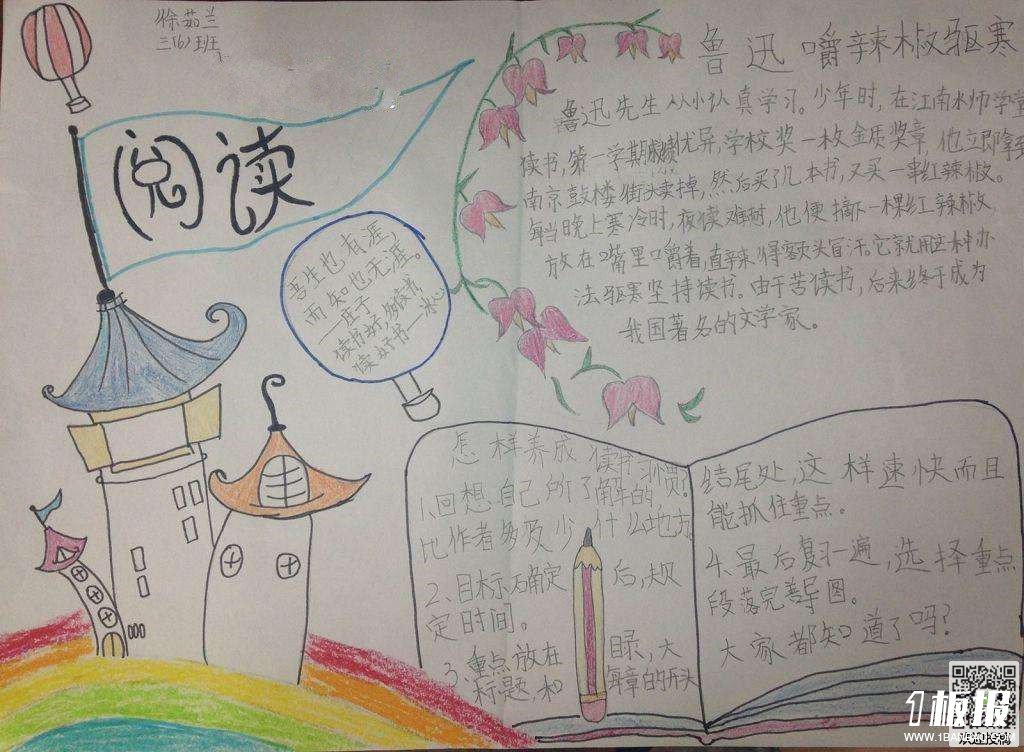 徐茹兰
三(6)班
阅读
吾生也有涯,
而知也无涯。
——庄子
读书好,多读书,
读好书——冰心
鲁迅嚼辣椒驱寒
鲁迅先生从小认真学习。少年时,在江南水师学堂
读书,第一学期成绩优异,学校奖一枚金质奖章,他立即拿到
南京鼓楼街头卖掉,然后买了几本书,又买一串红辣椒。
每当晚上寒冷时,夜读难耐,他便摘下一棵红辣椒,
放在嘴里嚼着,直辣得额头冒汗。它就用这种办
法驱寒坚持读书。由于苦读书,后来终于成为
我国著名的文学家。
怎样养成读书习惯?
1.回想自己所了解的
比作者多及少什么地方
2.目标确定后,规
定时间。
3.重点放在目录,大
标题和每章的开头
结尾处,这样速快而且
能抓住重点。
4.最后复习一遍,选择重点
段落完善导图。
大家都知道了吗?
1板报
WWW.1BANBAO.COM
欢迎投稿